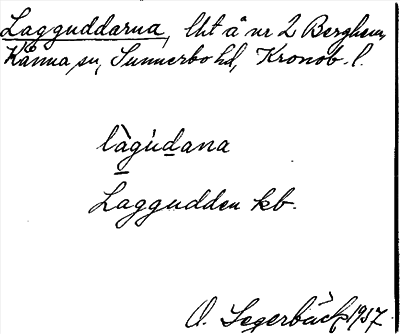 Lagguddarna, Uht å nr 2 Berghem,
Kånna sn, Sunnerbo hd, Kronob. l.
làgùdana
Laggudden kb.
O. Segerbäck 1937.